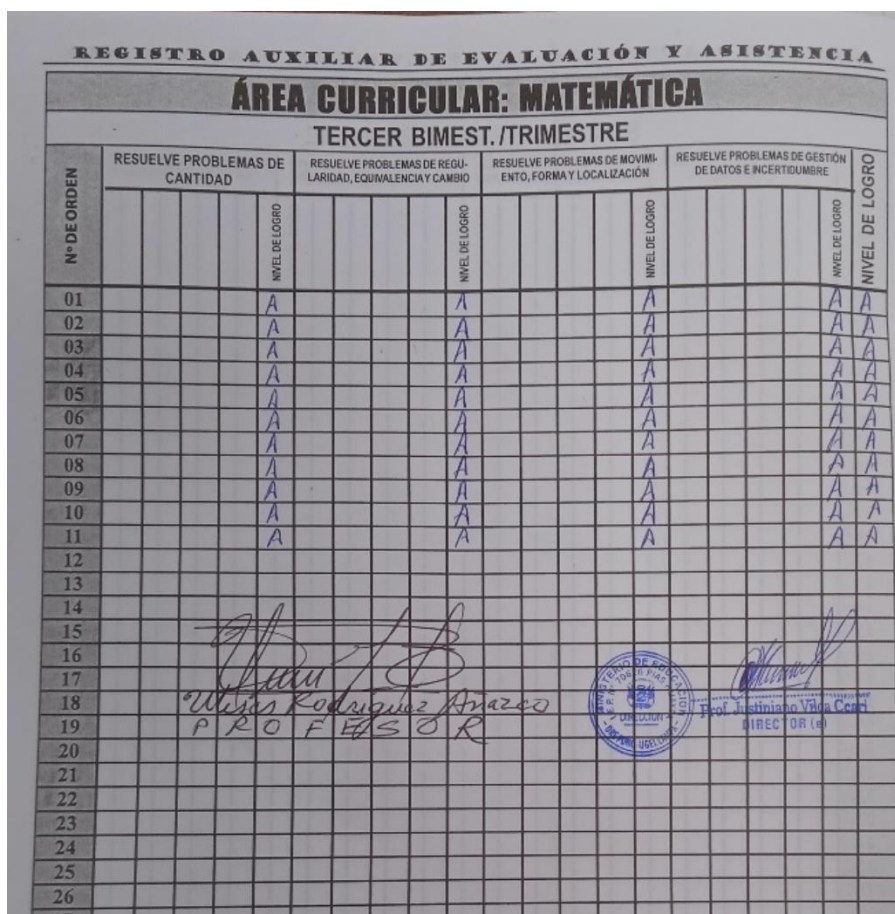 REGISTRO AUXILIAR DE EVALUACIÓN Y ASISTENCIA
ÁREA CURRICULAR: MATEMÁTICA
TERCER BIMEST. /TRIMESTRE
Nº DE ORDEN
RESUELVE PROBLEMAS DE
CANTIDAD
RESUELVE PROBLEMAS DE REGU-
LARIDAD, EQUIVALENCIA Y CAMBIO
RESUELVE PROBLEMAS DE MOVIMI-
ENTO, FORMA Y LOCALIZACIÓN
RESUELVE PROBLEMAS DE GESTIÓN
DE DATOS E INCERTIDUMBRE
NIVEL DE LOGRO
NIVEL DE LOGRO
NIVEL DE LOGRO
NIVEL DE LOGRO
NIVEL DE LOGRO
01 A A A A A
02 A A A A A
03 A A A A A
04 A A A A A
05 A A A A A
06 A A A A A
07 A A A A A
08 A A A A A
09 A A A A A
10 A A A A A
11 A A A A A
12
13
14
15
16
17
18
19
20
21
22
23
24
25
26
Ulises Rodriguez Añazco
PROFESOR
MINISTERIO DE EDUCACIÓN
DIRECCIÓN
Prof. Justiniano Vilca Ccari
DIRECTOR (e)